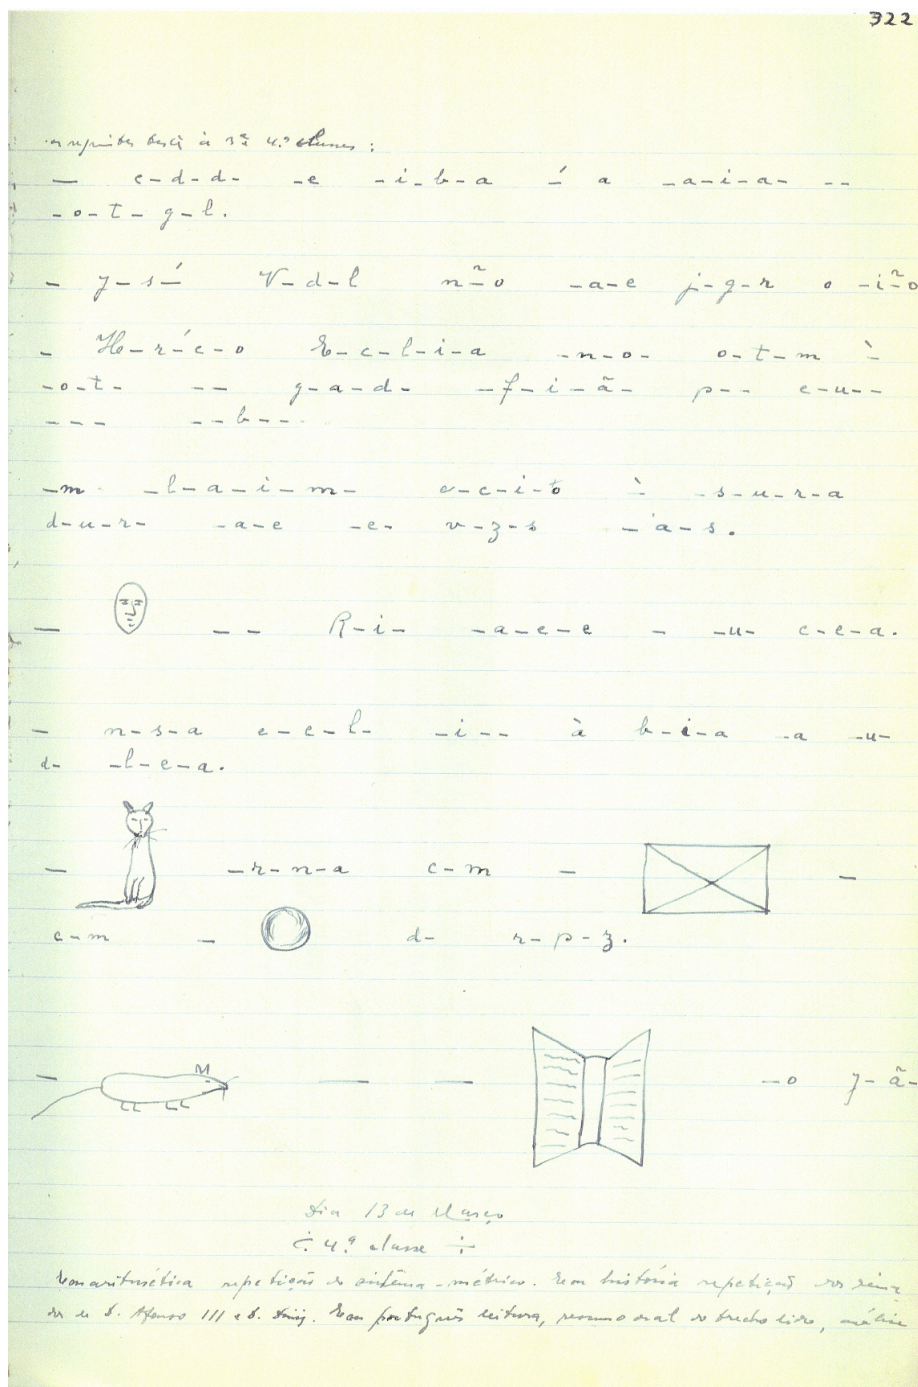 322
à 3ª e 4ª classes :
— c-d-d- -e -i-b-a -́ a -a-i-a- --
-o-t-g-l.
- j-s-́ V-d-l n-̃o -a-e j-g-r o -i-̃o
- H-r-́c-o E-c-l-i-a -n-o- o-t-m -̀
-o-t- -- g-a-d- -f-i-ã- p-- e-u--
--- --b---.
-m -l-a-i-m- e-c-i-t-o -̀ -s-u-r-a
d-u-r- -a-e -e- v-z-s -'a-s.
— -- R-i- -a-e-e - -u- c-e-a.
- n-s-a e-c-l- -i-- à b-i-a -a -u-
d- -l-e-a.
- -r-n-a c-m - -
c-m - d- r-p-z.
- — — -o J-ã-
Dia 13 de Março
÷ 4.ª classe ÷
Em aritmética repetição do sistema-métrico. Em história repetição dos reina
dos de D. Afonso III e D. Diniz. Em português leitura, resumo oral do trecho lido, análise